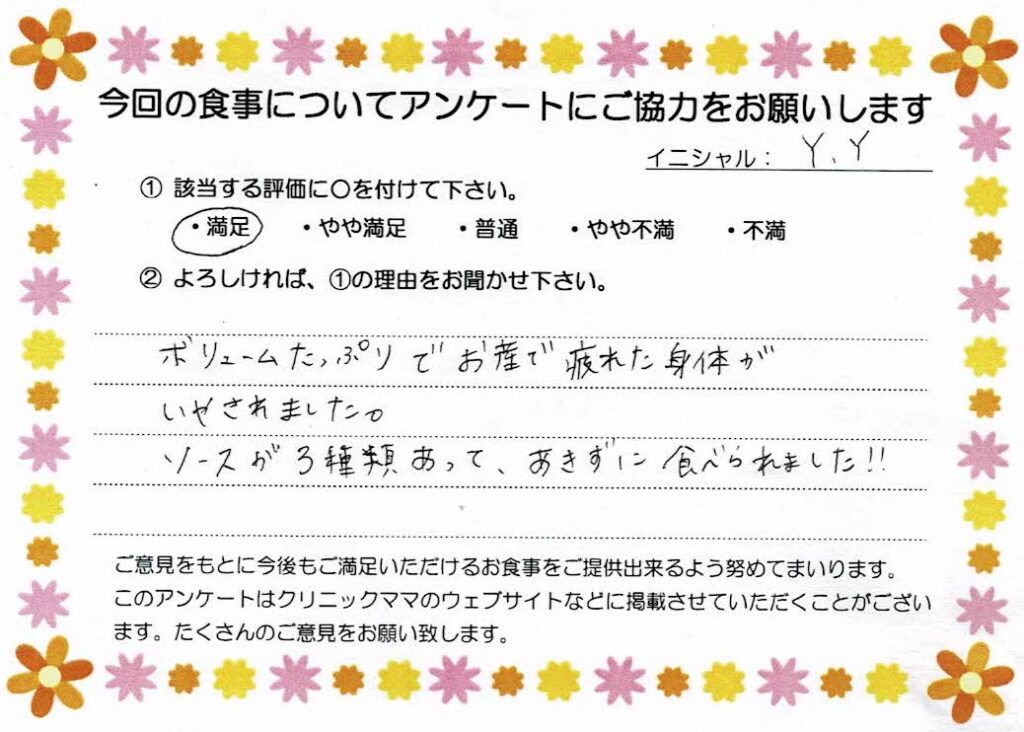 今回の食事についてアンケートにご協力をお願いします
イニシャル： Y、Y
① 該当する評価に〇を付けて下さい。
・満足 ・やや満足 ・普通 ・やや不満 ・不満
② よろしければ、①の理由をお聞かせ下さい。
ボリュームたっぷりでお産で疲れた身体が
いやされました。
ソースが3種類あって、あきずに食べられました!!
ご意見をもとに今後もご満足いただけるお食事をご提供出来るよう努めてまいります。
このアンケートはクリニックママのウェブサイトなどに掲載させていただくことがござい
ます。たくさんのご意見をお願い致します。